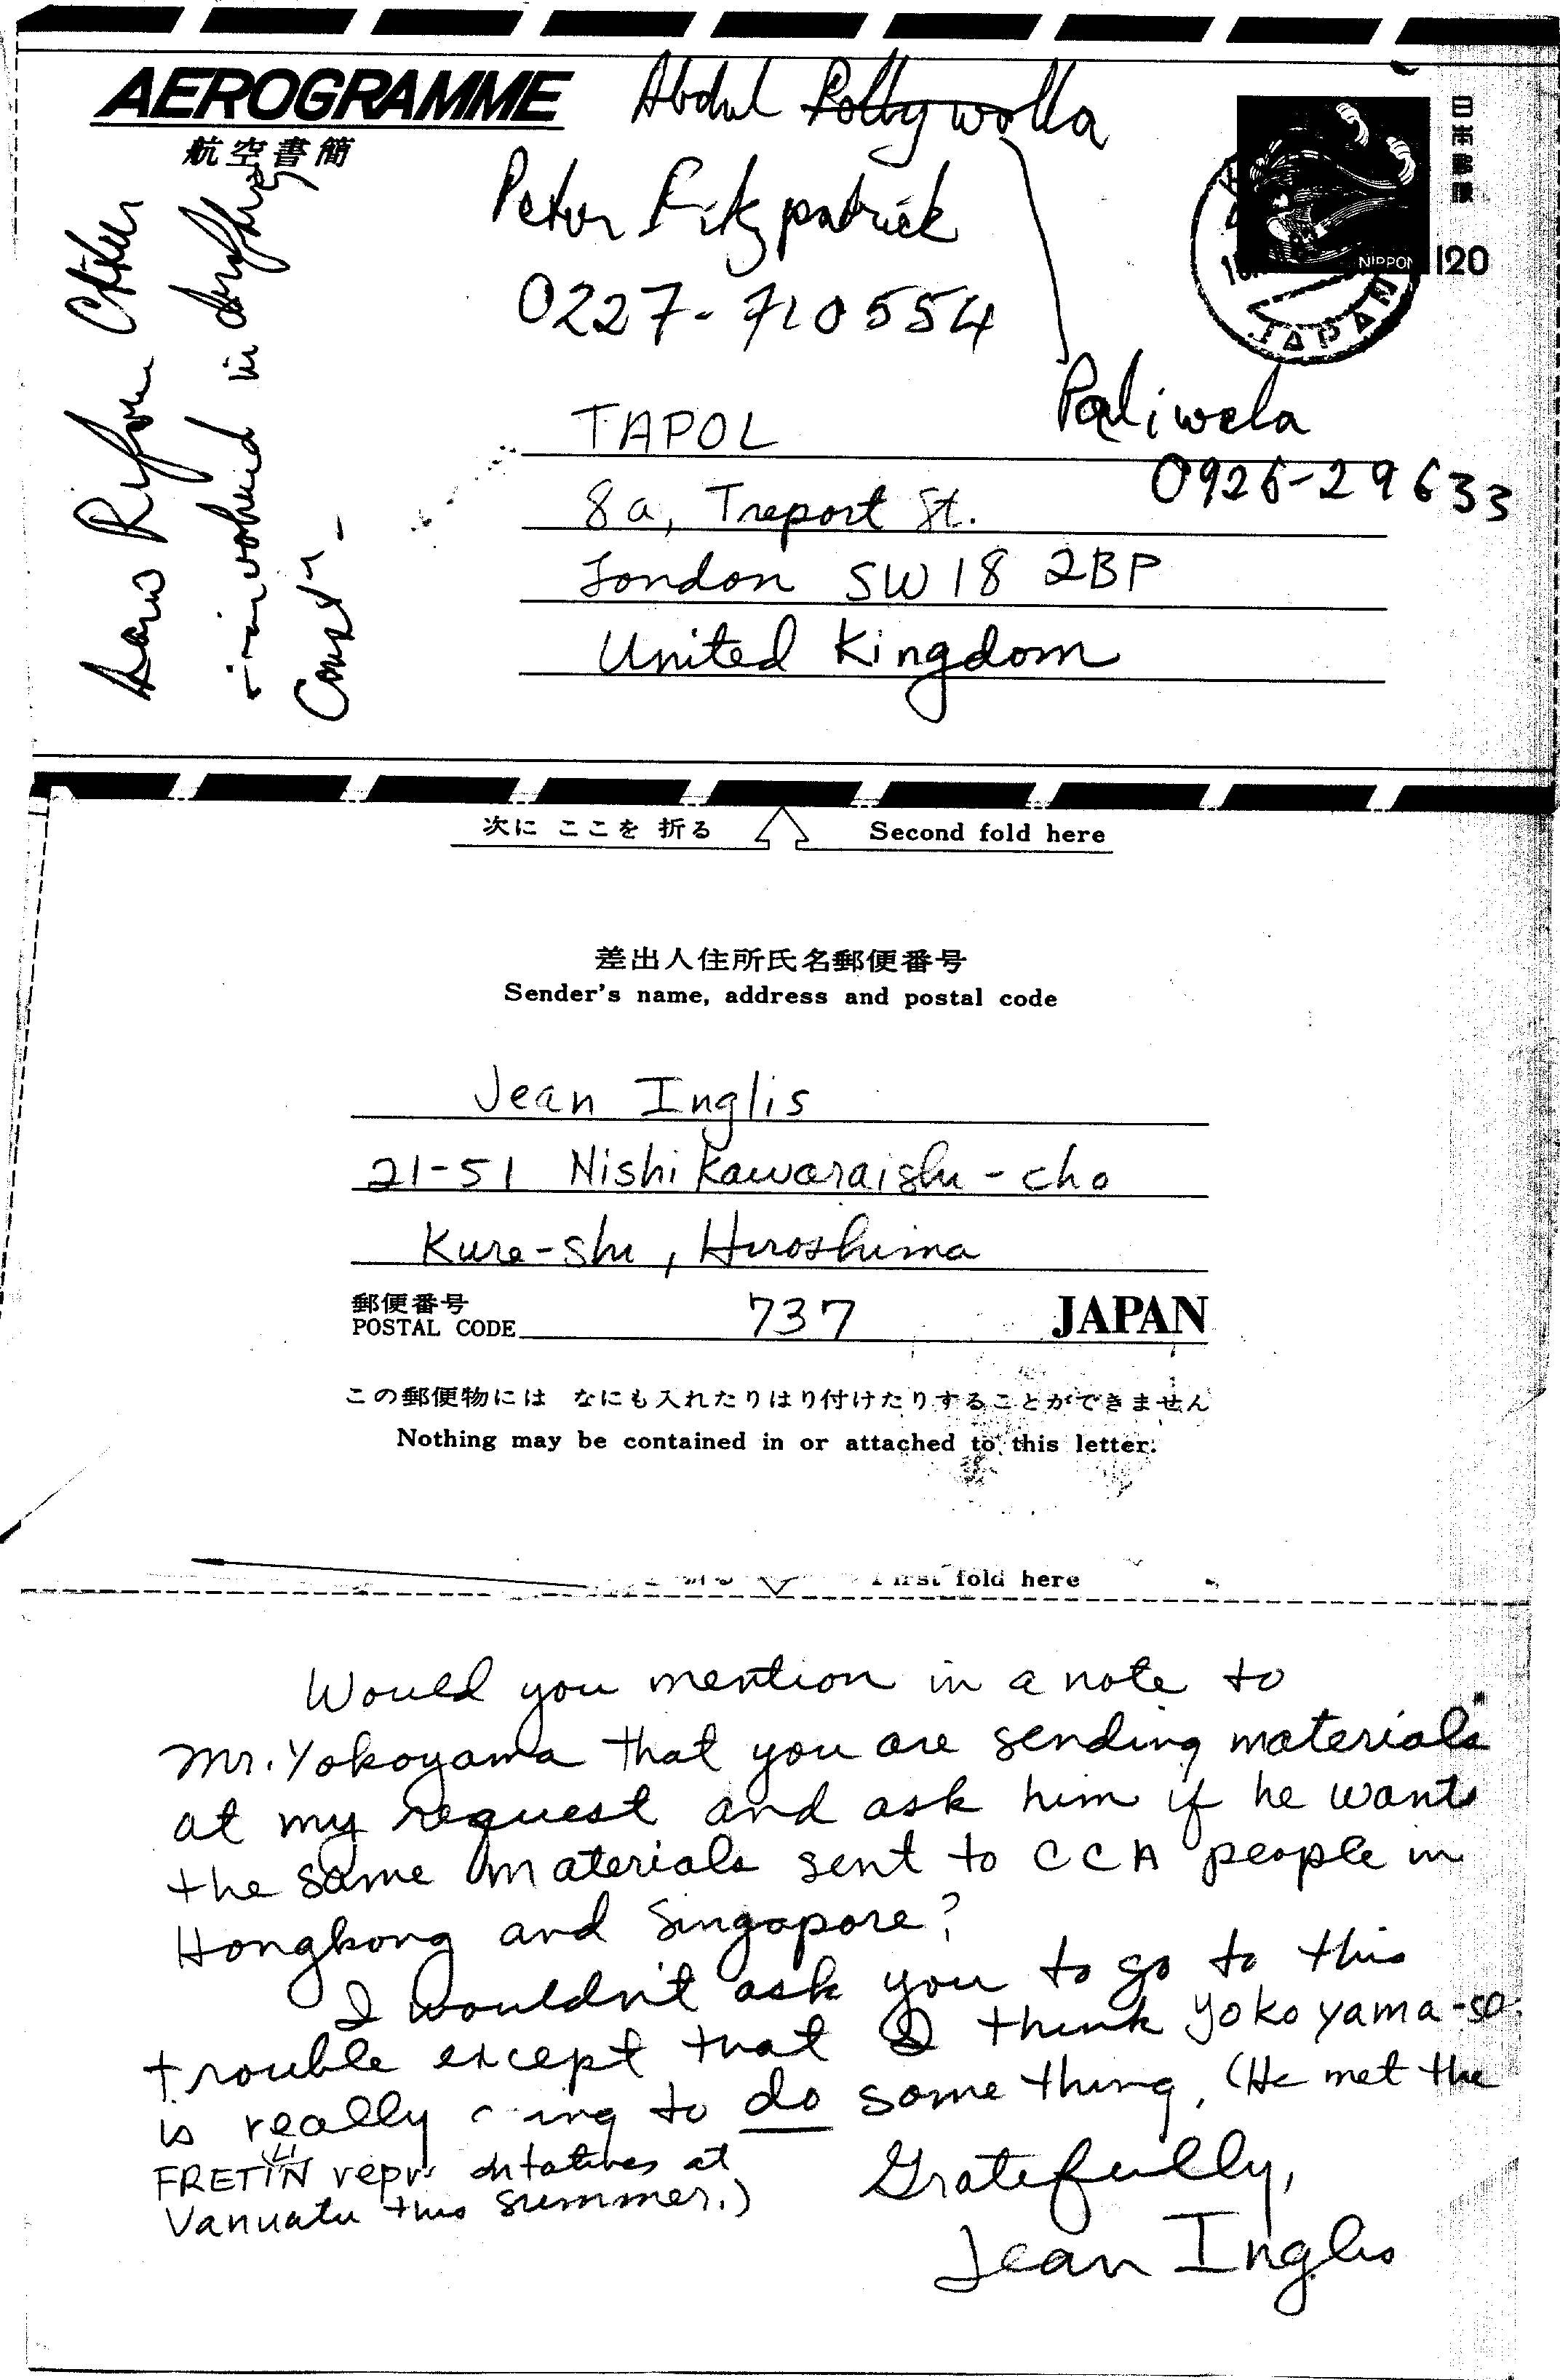 AEROGRAMME
航空書簡
Abdul Pollywolla
Peter Fitzpatrick
0227-710554
Paliwala
0926-29633
Law Reform
involved in drafting
日本郵便
NIPPON 120
JAPAN
TAPOL
8a, Treport St.
London SW18 2BP
United Kingdom
次に ここを 折る
Second fold here
差出人住所氏名郵便番号
Sender's name, address and postal code
Jean Inglis
21-51 Nishi Kawaraishi-cho
Kure-shi, Hiroshima
郵便番号
POSTAL CODE 737 JAPAN
この郵便物には なにも入れたりはり付けたりすることができません
Nothing may be contained in or attached to this letter.
First fold here
Would you mention in a note to
Mr. Yokoyama that you are sending materials
at my request and ask him if he wants
the same materials sent to CCA people in
Hongkong and Singapore?
I wouldn't ask you to go to this
trouble except that I think Yokoyama-
is really to do something. (He met the
FRETILIN representatives at
Vanuatu this summer.)
Gratefully,
Jean Inglis